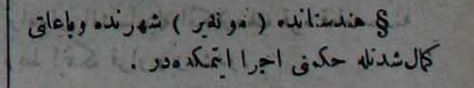 § هندستانده ( مونغیر ) شهرنده وباعلتی
كمال شدتله حكمنی اجرا ایتمكده در .